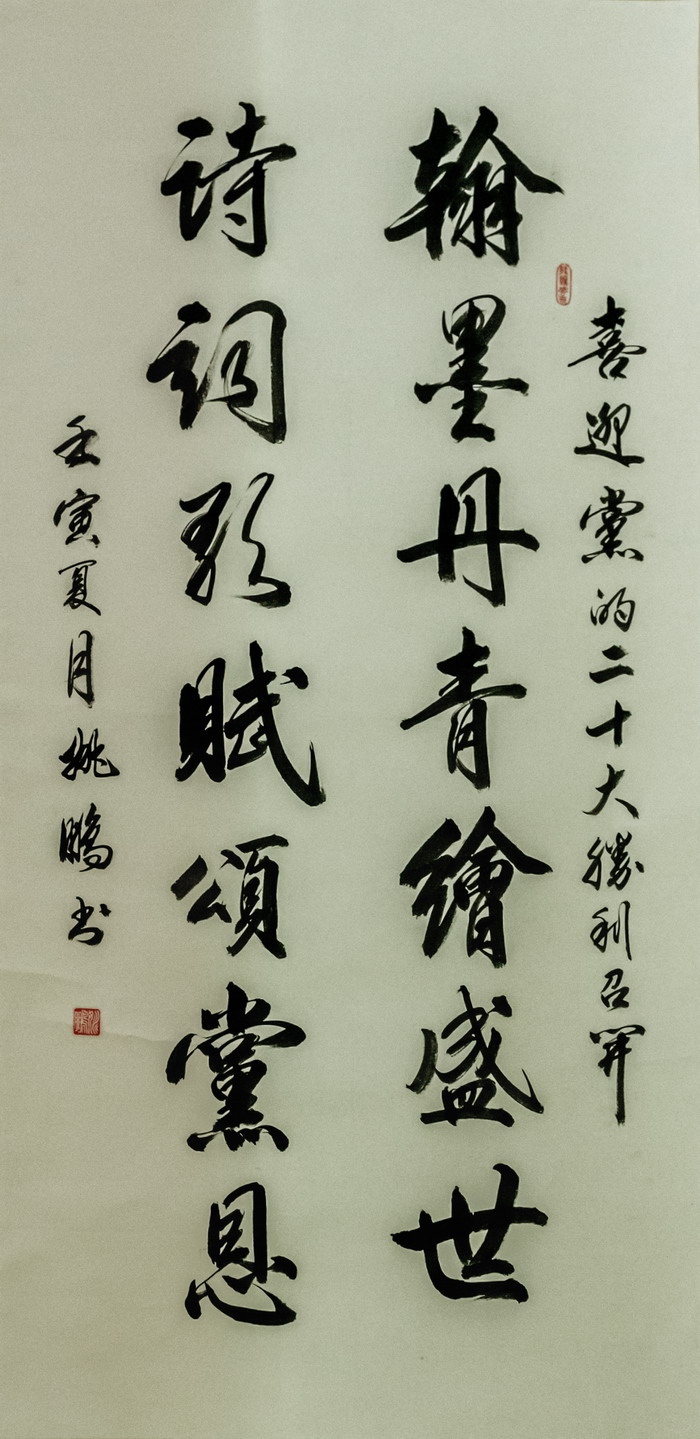 喜迎黨的二十大勝利召開
翰墨丹青繪盛世
詩詞歌賦頌黨恩
壬寅夏月姚鵬书